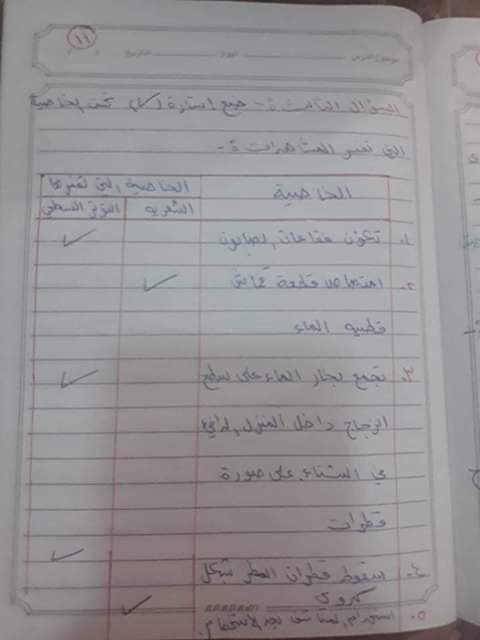 ١١
موضوع الدرس اليوم التاريخ
السؤال الثالث :- ضع إشارة (✓) تحت الخاصية
التي تفسر المشاهدات :-
الخاصية الخاصية التي تفسرها
الشعرية التوتر السطحي
١. تكون فقاعات الصابون ✓
٢. امتصاص قطعة قماش ✓
قطنية الماء
٣. تجمع بخار الماء على سطح ✓
الزجاج داخل المنزل الدافئ
في الشتاء على صورة
قطرات
٤. سقوط قطرات المطر بشكل ✓
كروي
٥. استخدام المناشف بعد الاستحمام. ✓